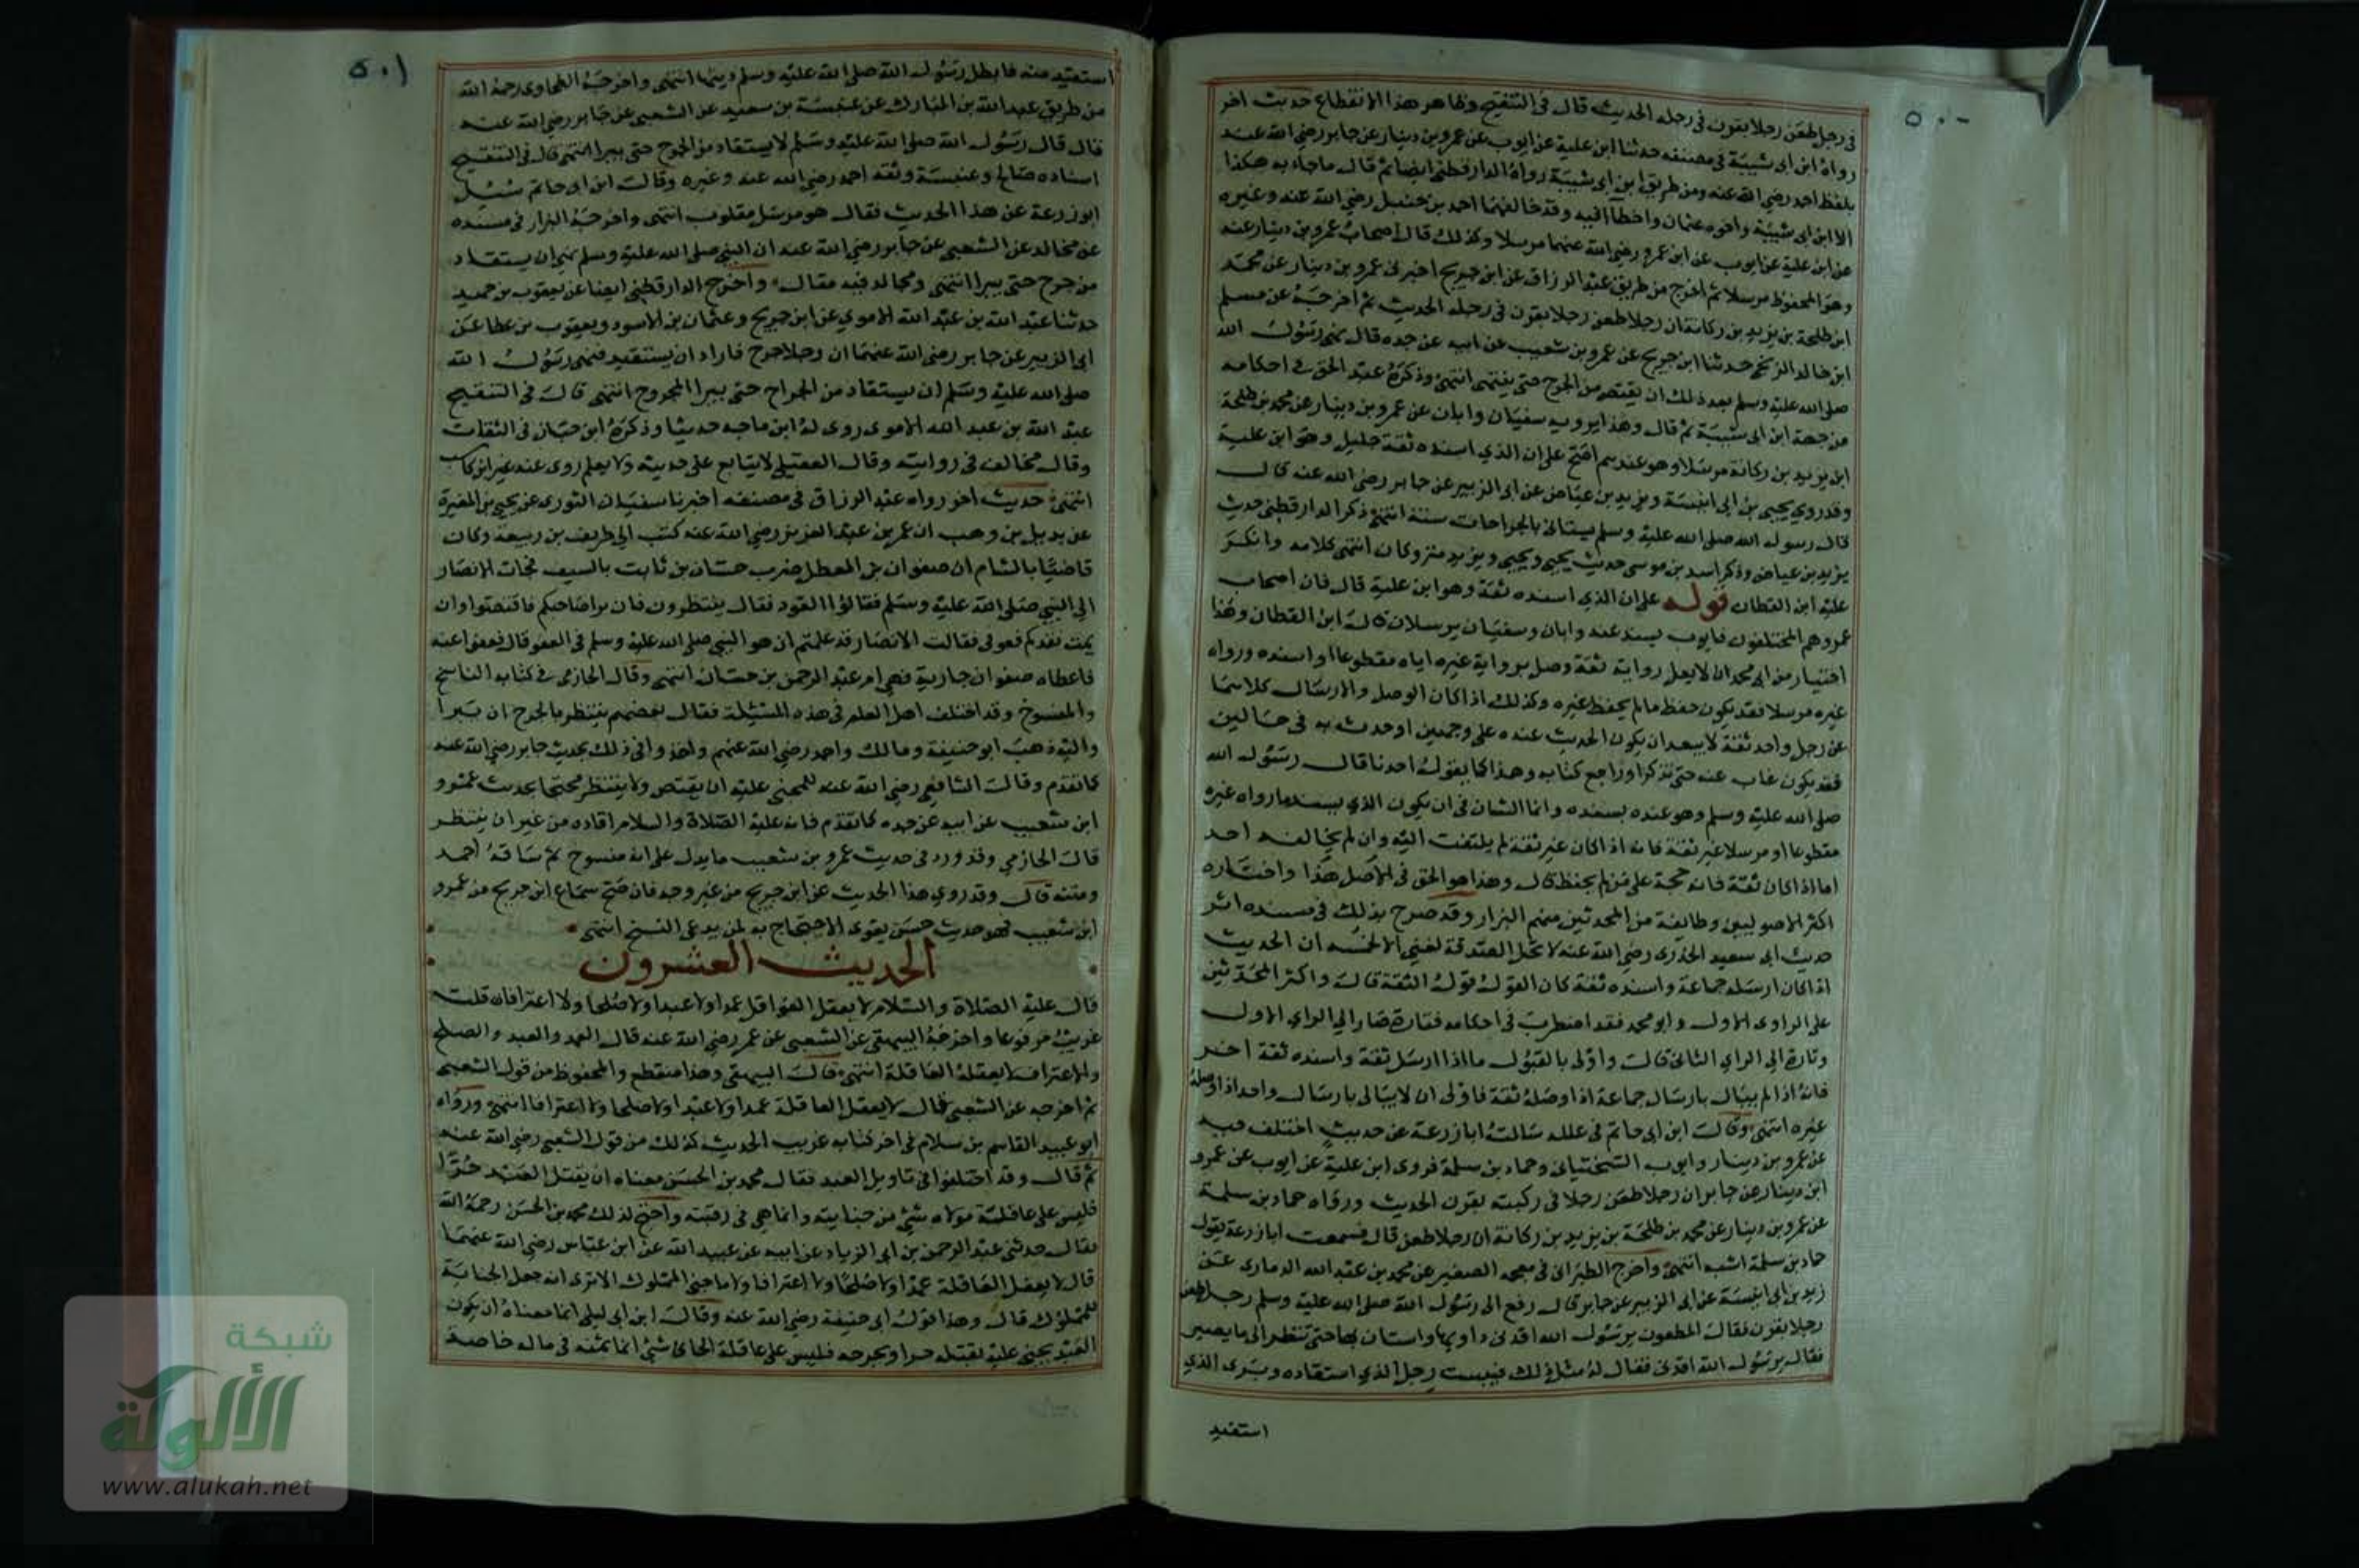 ٥٠٠
في رجل طعن رجلا بقرن في رجله الحديث قال في التنقيح وظاهر هذا الانقطاع حديث اخر
رواه ابن ابي شيبة في مصنفه حدثنا ابن علية عن ايوب عن عمرو بن دينار عن جابر رضي الله عنه
بلفظ احمد رضي الله عنه ومن طريق ابن ابي شيبة رواه الدارقطني ايضا ثم قال ما جاء به هكذا
الا ابن ابي شيبة واخوه عثمان واخطآ فيه وقد خالفهما احمد بن حنبل رضي الله عنه وغيره
عن ابن علية عن ايوب عن ابن عمرو رضي الله عنهما مرسلا وكذلك قال اصحاب عمرو بن دينار عنه
وهو المحفوظ مرسلا ثم اخرج من طريق عبد الرزاق عن ابن جريج اخبرني عمرو بن دينار عن محمد
ابن طلحة بن يزيد بن ركانة ان رجلا طعن رجلا بقرن في رجله الحديث ثم اخرجه عن مسلم
ابن خالد الزنجي حدثنا ابن جريج عن عمرو بن شعيب عن ابيه عن جده قال نهى رسول الله
صلى الله عليه وسلم بعد ذلك ان يقتص من الجرح حتى ينتهى انتهى وذكره عبد الحق في احكامه
من جهة ابن ابي شيبة ثم قال وهذا يرويه سفيان وابان عن عمرو بن دينار عن محمد بن طلحة
ابن يزيد بن ركانة مرسلا وهو عندهم اصح على ان الذي اسنده ثقة جليل وهو ابن علية
وقد روي يحيى بن ابي انيسة ويزيد بن عياض عن ابي الزبير عن جابر رضي الله عنه قال
قال رسول الله صلى الله عليه وسلم يستانى بالجراحات سنة انتهى ذكر الدارقطني حديث
يزيد بن عياض وذكر اسد بن موسى حديث يحيى ويحيى ويزيد متروكان انتهى كلامه وانكر
عليه ابن القطان قوله على ان الذي اسنده ثقة وهو ابن علية قال فان اصحاب
عمرو هم المختلفون فايوب يسند عنه وابان وسفيان يرسلان قال ابن القطان وهذا
اختيار من ابي محمد ان لا يعل رواية ثقة وصل برواية غيره اياه مقطوعا او اسنده ورواه
غيره مرسلا فقد يكون حفظ ما لم يحفظ غيره وكذلك اذا كان الوصل والارسال كلاهما
عن رجل واحد ثقة لا يبعد ان يكون الحديث عنده على وجهين او حدث به في حالين
فقد يكون غاب عنه حتى تذكر او راجع كتابه وهذا كما يقول احدنا قال رسول الله
صلى الله عليه وسلم وهو عنده بسنده وانما الشان في ان يكون الذي يسند ما رواه غيره
مقطوعا او مرسلا غير ثقة فانه اذا كان غير ثقة لم يلتفت اليه وان لم يخالفه احد
اما اذا كان ثقة فانه حجة على من لم يحفظ قال وهذا هو الحق في الاصل هذا واختاره
اكثر الاصوليين وطائفة من المحدثين منهم البزار وقد صرح بذلك في مسنده اثر
حديث ابي سعيد الخدري رضي الله عنه لا تحل الصدقة لغني الا لخمسة ان الحديث
اذا كان ارسله جماعة واسنده ثقة كان القول قول الثقة قال واكثر المحدثين
على الراي الاول وابو محمد فقد اضطرب في احكامه فتارة صار الى الراي الاول
وتارة الى الراي الثاني قال واولى بالقبول ما اذا ارسل ثقة واسنده ثقة اخر
فانه اذا لم يبال بارسال جماعة اذا وصله ثقة فاولى ان لا يبالى بارسال واحد اذا وصله
غيره انتهى وقال ابن ابي حاتم في علله سالت ابا زرعة عن حديث اختلف فيه
عن عمرو بن دينار وايوب السختياني وحماد بن سلمة فروى ابن علية عن ايوب عن عمرو
ابن دينار عن جابر ان رجلا طعن رجلا في ركبته بقرن الحديث ورواه حماد بن سلمة
عن عمرو بن دينار عن محمد بن طلحة بن يزيد بن ركانة ان رجلا طعن قال فسمعت ابا زرعة يقول
حماد بن سلمة اشبه انتهى واخرج الطبراني في معجمه الصغير عن محمد بن عبد الله الدماري عن
زيد بن ابي انيسة عن ابي الزبير عن جابر قال رفع الى رسول الله صلى الله عليه وسلم رجل طعن
رجلا بقرن فقال المطعون يرسول الله اقدني داوبها واستان بها حتى تنظر الى ما يصير
فقال يرسول الله اقدني فقال له مثل ذلك فيبست رجل الذي استقاده وبرى الذي
استقيد
٥٠١
استقيد منه فابطل رسول الله صلى الله عليه وسلم ديتها انتهى واخرجه الطحاوي رحمه الله
من طريق عبد الله بن المبارك عن عنبسة بن سعيد عن الشعبي عن جابر رضي الله عنه
قال قال رسول الله صلى الله عليه وسلم لا يستقاد من الجرح حتى يبرا انتهى قال في التنقيح
اسناده صالح وعنبسة وثقه احمد رضي الله عنه وغيره وقال ابن ابي حاتم سئل
ابو زرعة عن هذا الحديث فقال هو مرسل مقلوب انتهى واخرجه البزار في مسنده
عن مخالد عن الشعبي عن جابر رضي الله عنه ان النبي صلى الله عليه وسلم نهى ان يستقاد
من جرح حتى يبرا انتهى ومجالد فيه مقال واخرج الدارقطني ايضا عن يعقوب بن حميد
حدثنا عبد الله بن عبد الله الاموي عن ابن جريج وعثمان بن الاسود ويعقوب بن عطا عن
ابي الزبير عن جابر رضي الله عنهما ان رجلا جرح فاراد ان يستقيد فنهى رسول الله
صلى الله عليه وسلم ان يستقاد من الجراح حتى يبرا المجروح انتهى قال في التنقيح
عبد الله بن عبد الله الاموي روى له ابن ماجه حديثا وذكره ابن حبان في الثقات
وقال مخالف في روايته وقال العقيلي لا يتابع على حديثه ولا يعلم روى عنه غير ابن كاسب
انتهى حديث اخر رواه عبد الرزاق في مصنفه اخبرنا سفيان الثوري عن يحيى بن المغيرة
عن بديل بن وهب ان عمر بن عبد العزيز رضي الله عنه كتب الى طريف بن ربيعة وكان
قاضيا بالشام ان صفوان بن المعطل ضرب حسان بن ثابت بالسيف فجات الانصار
الى النبي صلى الله عليه وسلم فقالوا القود فقال ينتظرون فان برا صاحبكم فاقتصوا وان
يمت نقدكم فعوفى فقالت الانصار قد علمتم ان هو النبي صلى الله عليه وسلم في العفو قال فعفوا عنه
فاعطاه صفوان جارية فهي ام عبد الرحمن بن حسان انتهى وقال الحازمي في كتابه الناسخ
والمنسوخ وقد اختلف اهل العلم في هذه المسئلة فقال بعضهم ينتظر بالجرح ان تبرا
واليه ذهب ابو حنيفة ومالك واحمد رضي الله عنهم واخذوا في ذلك بحديث جابر رضي الله عنه
كما تقدم وقال الشافعي رضي الله عنه للمجني عليه ان يقتص ولا ينتظر محتجا بحديث عمرو
ابن شعيب عن ابيه عن جده كما تقدم فانه عليه الصلاة والسلام اقاده من غير ان ينتظر
قال الحازمي وقد ورد في حديث عمرو بن شعيب ما يدل على انه منسوخ ثم ساقه احمد
ومتنه قال وقد روي هذا الحديث عن ابن جريج من غير وجه فان صح سماع ابن جريج من عمرو
ابن شعيب فهو حديث حسن يقوى الاحتجاج به لمن يدعي النسخ انتهى
الحديث العشرون
قال عليه الصلاة والسلام لا يعقل العواقل عمدا ولا عبدا ولا صلحا ولا اعترافا قلت
غريب مرفوعا واخرجه البيهقي عن الشعبي عن عمر رضي الله عنه قال العمد والعبد والصلح
والاعتراف لا يعقله العاقلة انتهى قال البيهقي وهذا منقطع والمحفوظ من قول الشعبي
ثم اخرجه عن الشعبي قال لا يعقل العاقلة عمدا ولا عبدا ولا صلحا ولا اعترافا انتهى ورواه
ابو عبيد القاسم بن سلام في اخر كتابه غريب الحديث كذلك من قول الشعبي رضي الله عنه
ثم قال وقد اختلفوا في تاويل العبد فقال محمد بن الحسن معناه ان يقتل العبد حرا
فليس على عاقلة مولاه شئ من جنايته وانما هي في رقبته واحتج لذلك محمد بن الحسن رحمه الله
فقال حدثني عبد الرحمن بن ابي الزياد عن ابيه عن عبيد الله عن ابن عباس رضي الله عنهما
قال لا يعقل العاقلة عمدا ولا صلحا ولا اعترافا ولا ما جنى المملوك الا ترى انه جعل الجناية
للمملوك قال وهذا قول ابي حنيفة رضي الله عنه وقال ابن ابي ليلى انما معناه ان يكون
العبد يجنى عليه بقتله حرا ويجرحه فليس على عاقلة الجاني شئ انما ثمنه في ماله خاصة
شبكة
الألوكة
www.alukah.net